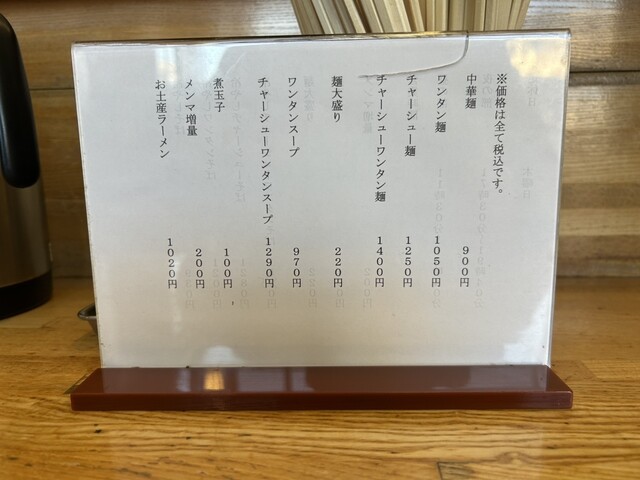 ※価格は全て税込です。
中華麺 900円
ワンタン麺 1050円
チャーシュー麺 1250円
チャーシューワンタン麺 1400円
麺大盛り 220円
ワンタンスープ 970円
チャーシューワンタンスープ 1290円
煮玉子 100円
メンマ増量 200円
お土産ラーメン 1020円